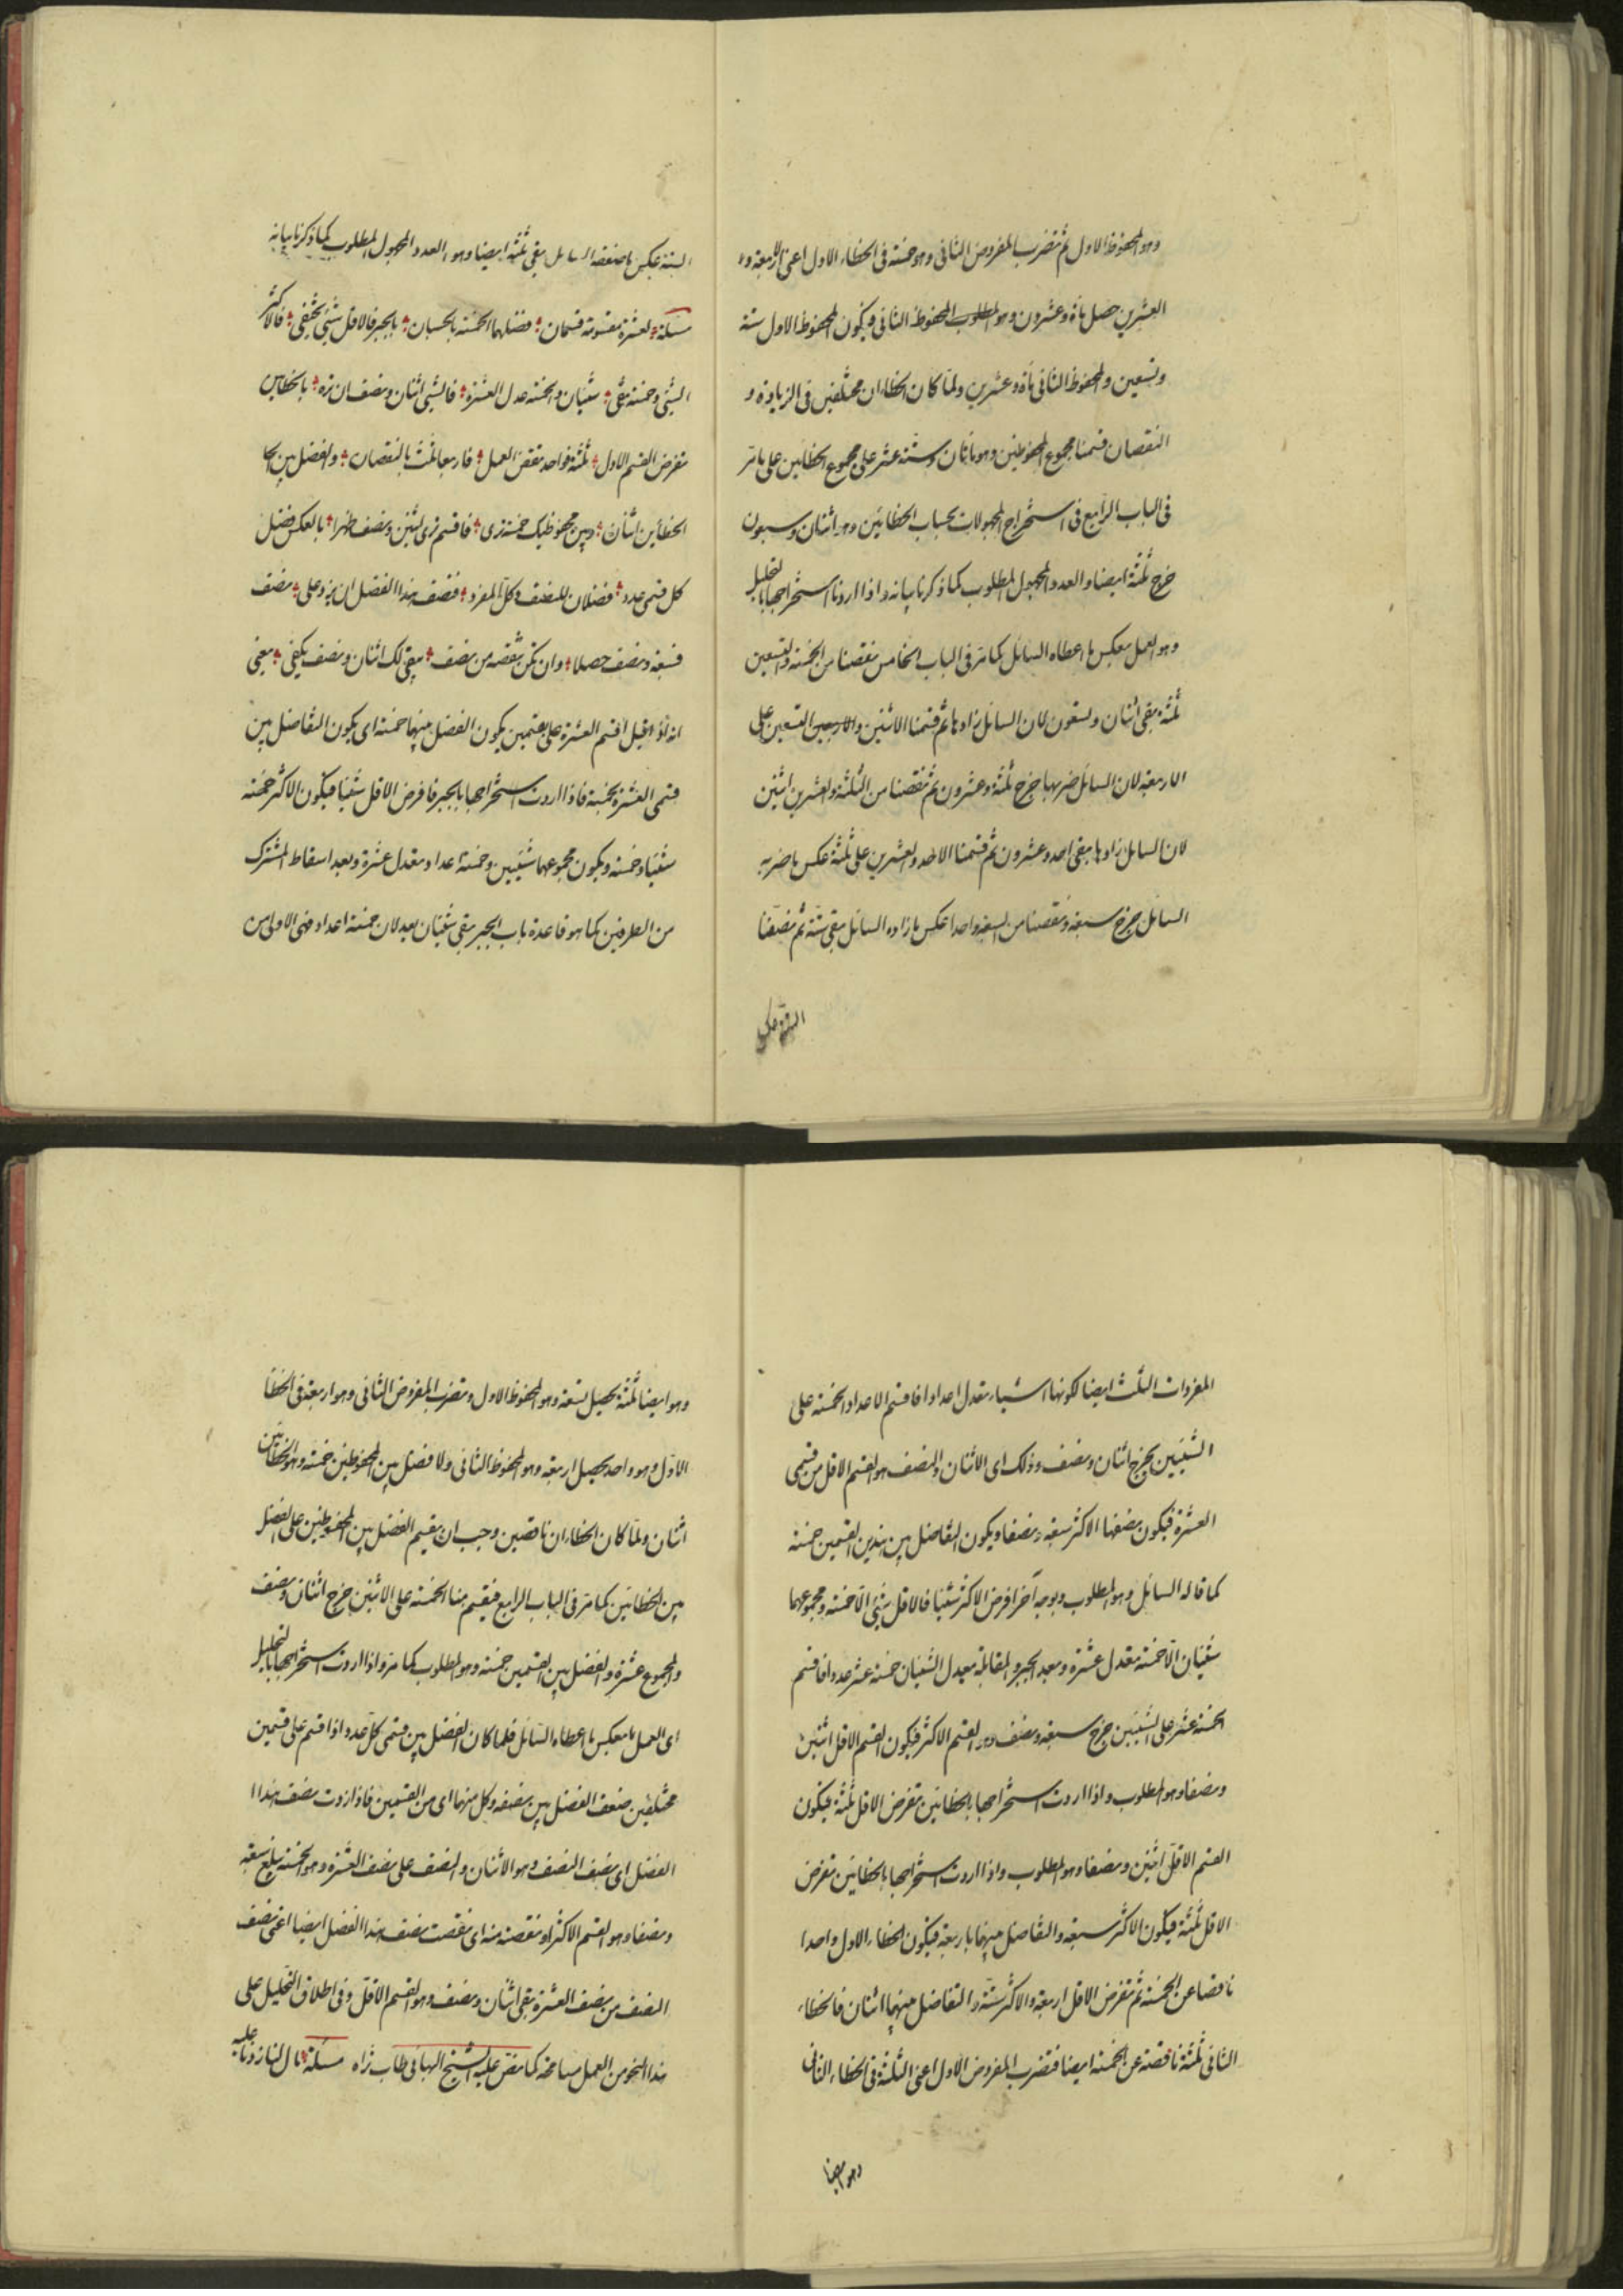 وهو المحفوظ الاول ثم تضرب المفروض الثانی وهو خمسة فی الخطاء الاول اعنی الاربعة و
العشرین حصل مأة وعشرون وهو المطلوب المحفوظ الثانی فیکون المحفوظ الاول ستة
وتسعین والمحفوظ الثانی مأة وعشرین ولما کان الخطاءان مختلفین فی الزیادة و
النقصان قسمنا مجموع المحفوظین وهو مأتان وستة عشر علی مجموع الخطائین علی ما مر
فی الباب الرابع فی استخراج المجهولات بحساب الخطائین وهو اثنان وسبعون
خرج ثلثة ایضا والعدد المجهول المطلوب کما ذکرنا بیانه واذا اردنا استخراجها بالتحلیل
وهو العمل بعکس ما اعطاه السائل کما مر فی الباب الخامس نقصنا من الخمسة والتسعین
ثلثة بقی اثنان وتسعون لان السائل زادها ثم قسمنا الاثنین والاربعین التسعین علی
الاربعة لان السائل ضربها خرج ثلثة وعشرون ثم نقصنا من الثلثة والعشرین اثنین
لان السائل زادها بقی احد وعشرون ثم قسمنا الاحد والعشرین علی ثلثة عکس ما ضربه
السائل خرج سبعة ونقصنا من السبعة واحدا عکس ما زاده السائل بقی ستة ثم نصفنا
الستة عکس ما ضعفه السائل بقی ثلثة ایضا وهو العدد المجهول المطلوب کما ذکرنا بیانه
مسئلة لعشرة مقسومة قسمان فضلهما الخمسة بالحسبان بالجبر فالاقل شیئ یختفی فالاکثر
الشیئ وخمسة بقی شیئان والخمسة عدل العشرة فالشیئ اثنان ونصف ان تره بالخطاین
تفرض القسم الاول ثلثة فواحد نقض العمل فاربعا ثلث بالنقصان والفضل بین
الخطأین اثنان وبین محفوظیک خمسة تری فاقسم تری اثنین ونصف ظهرا بالعکس فضل
کل قسمی عدد فضلان للنصف وکل المفرد فنصف هذا الفضل ان یزد علی نصف
فسبعة ونصف حصلا وان تکن نقصه من نصف یبقی لک اثنان ونصف یکفی یعنی
انه لو قیل اقسم العشرة علی قسمین یکون الفضل بینهما خمسة ای یکون التفاضل بین
قسمی العشرة بخمسة فاذا اردت استخراجها بالجبر فافرض الاقل شیئا فیکون الاکثر خمسة
شیئا وخمسة ویکون مجموعهما شیئین وخمسة اعداد معدل عشرة وبعد اسقاط المشترک
من الطرفین کما هو قاعدة باب الجبر بقی شیئان یعدلان خمسة اعداد فهی الاولی من
المفردات الثلث ایضا لکونها اشیاء تعدل اعدادا فاقسم الاعداد الخمسة علی
الشیئین یخرج اثنان ونصف وذلک ای الاثنان والنصف هو القسم الاقل من قسمی
العشرة فیکون بضعها الاکثر سبعة ونصفا ویکون التفاضل بین هذین القسمین خمسة
کما قاله السائل وهو المطلوب وبوجه آخر افرض الاکثر شیئا فالاقل شیئ الا خمسة ومجموعهما
شیئان الا خمسة تعدل عشرة وبعد الجبر والمقابلة یعدل الشیئان خمسة عشر عددا فاقسم
الخمسة عشر علی الشیئین خرج سبعة ونصف وهو القسم الاکثر فیکون القسم الاقل اثنین
ونصفا وهو المطلوب واذا اردت استخراجها بالخطائین تفرض الاقل ثلثة فیکون
القسم الاقل اثنین ونصفا وهو المطلوب واذا اردت استخراجها بالخطائین تفرض
الاقل ثلثة فیکون الاکثر سبعة والتفاضل بینهما باربعة فیکون الخطاء الاول واحدا
ناقصا عن الخمسة ثم تفرض الاقل اربعة والاکثر ستة والتفاضل بینهما اثنان فالخطاء
الثانی ثلثة ناقصة عن الخمسة ایضا فتضرب المفروض الاول اعنی الثلثة فی الخطاء الثانی
وهو ایضا
وهو ایضا ثلثة یحصل تسعة وهو المحفوظ الاول وتضرب المفروض الثانی وهو اربعة فی الخطأ
الاول وهو واحد یحصل اربعة وهو المحفوظ الثانی ولا فضل بین المحفوظین خمسة وهو الخطائین
اثنان ولما کان الخطاءان ناقصین وجب ان یقسم الفضل بین المحفوظین علی الفضل
بین الخطائین کما مر فی الباب الرابع فیقسم هنا الخمسة علی الاثنین خرج اثنان ونصف
والمجموع عشرة والفضل بین القسمین خمسة وهو المطلوب کما مر واذا اردت استخراجها بالتحلیل
ای العمل بعکس ما اعطاه السائل فلما کان الفضل بین قسمی کل عدد اذا قسم علی قسمین
مختلفین ضعف الفضل بین نصفه وکل منهما ای من القسمین فاذا زدت نصف هذا ا
الفضل ای نصف النصف وهو الاثنان والنصف علی نصف العشرة وهو الخمسة یبلغ سبعة
ونصفا وهو القسم الاکثر او نقصته منه ای نقصت نصف هذا الفضل ایضا اعنی نصف
النصف من نصف العشرة بقی اثنان ونصف وهو القسم الاقل وفی اطلاق التحلیل علی
هذا النحو من العمل مسامحة کما نص علیه الشیخ البهائی طاب ثراه مسئلة مال لنا زدنا علیه